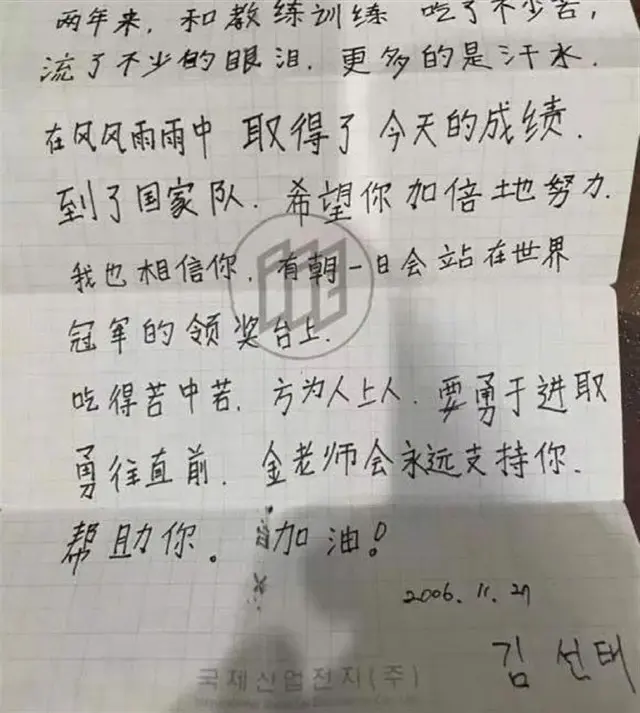 两年来，和教练训练 吃了不少苦，
流了不少的眼泪．更多的是汗水．
在风风雨雨中 取得了 今天的成绩．
到了国家队．希望你加倍地努力．
我也相信你．有朝一日会站在世界
冠军的领奖台上．
吃得苦中苦．方为人上人．要勇于进取
勇往直前．金老师会永远支持你．
帮助你。加油！
2006. 11. 27
김 선태
국제산업전지(주)